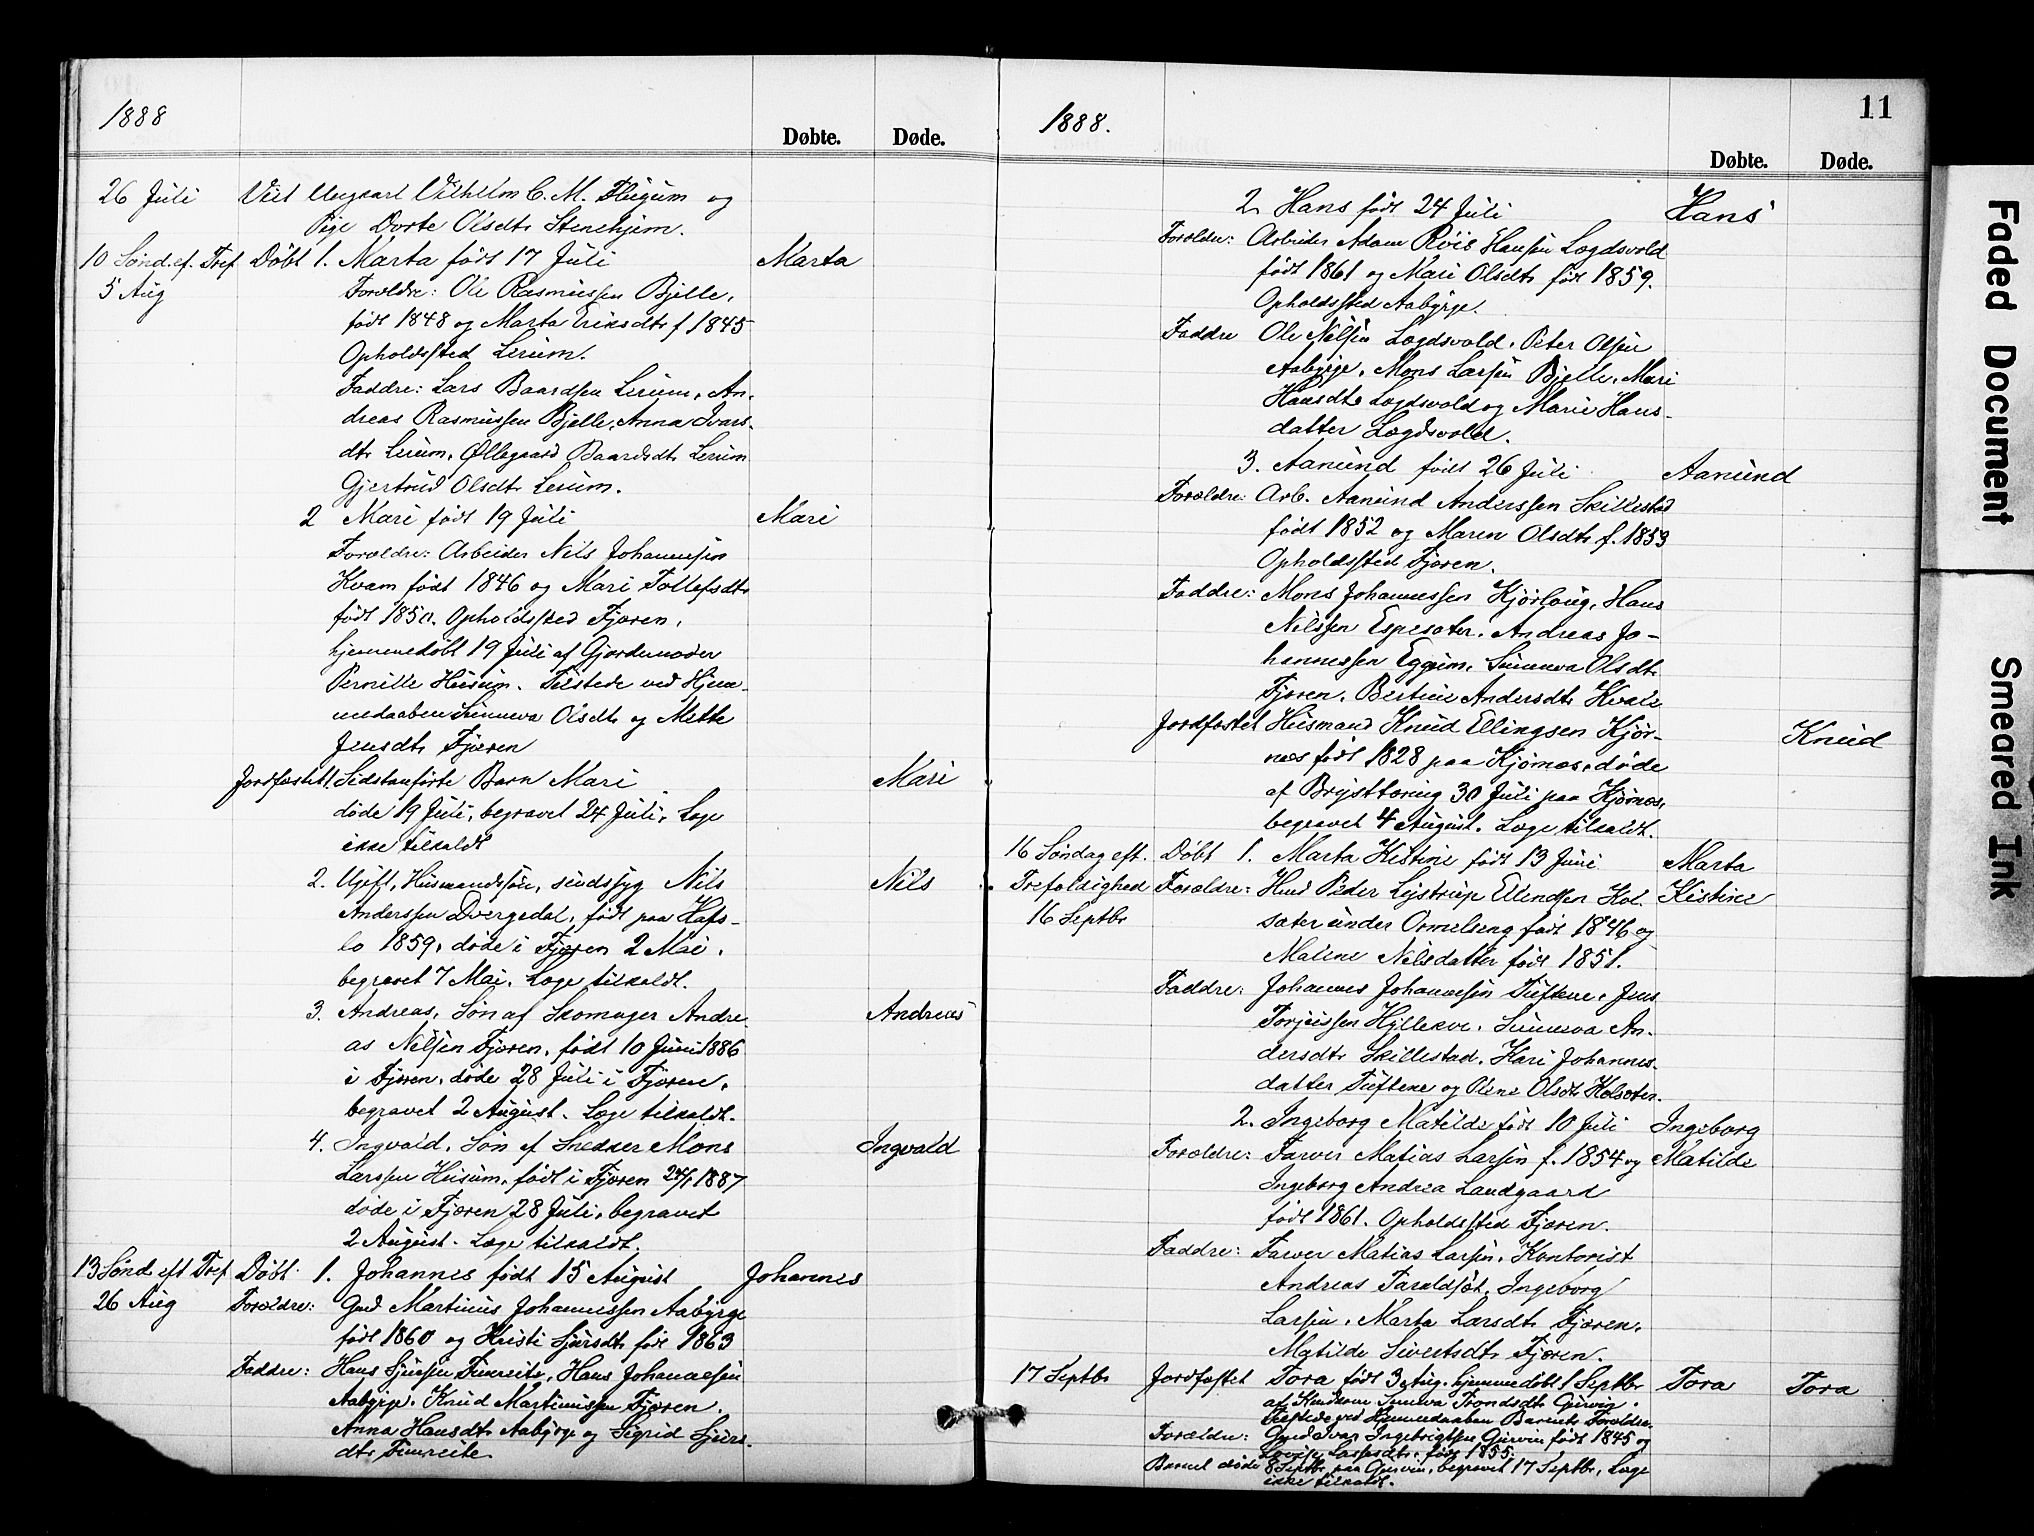 1888
Døbte.
Døde.
26 Juli Viet Ungkarl Vilhelm C. M. Flugum og
Pige Dorte Olsdtr Stenehjem.
10 Sønd. ef. Tref. Døbt 1. Marta født 17 Juli Marta
5 Aug Forældre: Ole Rasmussen Bjelle,
født 1848 og Marta Eriksdtr f. 1845
Opholdssted Lerum.
Faddre: Lars Baardsen Lerum, An-
dreas Rasmussen Bjelle, Anna Ivars-
dtr Lerum, Øllegaard Baardsdtr Lerum
Gjertrud Olsdtr Lerum.
2 Mari født 19 Juli Mari
Forældre: Arbeider Nils Johannesen
Kvam født 1846 og Mari Tollefsdtr
født 1850. Opholdssted Fjæren,
hjemmedøbt 19 Juli af Gjordemoder
Pernille Husum. Tilstede ved Hjem-
medaaben Sunneva Olsdtr og Mette
Jensdtr Fjæren
Jordfæstet 1. Sidstanførte Barn Mari Mari
døde 19 Juli, begravet 24 Juli, Læge
ikke tilkaldt
2. Ugift, Husmandssøn, sindssyg Nils Nils
Anderssen Dvergedal, født paa Hafs-
lo 1859, døde i Fjæren 2 Mai.
begravet 7 Mai. Læge tilkaldt.
3. Andreas, Søn af Skomager Andre- Andreas
as Nilsen Fjæren, født 10 Juni 1886
i Fjæren, døde 28 Juli i Fjæren,
begravet 2 August. Læge tilkaldt.
4. Ingvald, Søn af Snedker Mons Ingvald
Larssen Husum, født i Fjæren 24/1 1887
døde i Fjæren 28 Juli, begravet
2 August. Læge tilkaldt.
13 Sønd eft Tref Døbt 1. Johannes født 15 August Johannes
26 Aug Forældre: Gmd Martinus Johannessen Aabyrge
født 1860 og Kristi Sjursdtr født 1863
Faddre: Hans Sjursen Timreite, Hans Johannesen
Aabyrge. Knud Martinussen Fjæren.
Anna Hansdtr Aabyrge og Sigrid Sjurs-
dtr Timreite.
1888.
Døbte.
Døde.
11
2 Hans født 24 Juli Hans
Forældre: Arbeider Adam Røis Hansen Lægdsvold
født 1861 og Mari Olsdtr født 1859.
Opholdssted Aabyrge.
Faddre Ole Nilsen Lægdsvold, Peter Olsen
Aabyrge, Mons Larsen Bjelle, Mari
Hansdtr Lægdsvold og Marie Hans-
datter Lægdsvold.
3. Aamund født 26 Juli Aamund
Forældre: Arb. Aamund Anderssen Skillestad
født 1852 og Maren Olsdtr f. 1853
Opholdssted Fjæren.
Faddre: Mons Johannessen Kjørlaug, Hans
Nilssen Espesæter. Andreas Jo-
hannessen Eggum, Sunneva Olsdtr
Fjæren, Bertine Andersdtr Kvale
Jordfæstet Husmand Knud Ellingsen Kjør- Knud
næs født 1828 paa Kjørnæs, døde
af Brysttæring 30 Juli paa Kjørnæs,
begravet 4 August. Læge tilkaldt.
16 Søndag eft. Døbt 1. Marta Kistine født 13 Juni Marta
Trefoldighed Forældre: Husm Peder Lystrup Ellendsen Kol- Kistine
16 Septbr sæter under Ormelseng født 1846 og
Malene Nilsdatter født 1851.
Faddre: Johannes Johannesen Tuftene, Jens
Torjussen Hyllekve. Sunneva An-
dersdtr Skillestad. Kari Johannes-
datter Tuftene og Olene Olsdtr Kolsæter.
2. Ingeborg Matilde født 10 Juli Ingeborg
Forældre: Farver Matias Larsen f. 1854 og Matilde
Ingeborg Andrea Landgaard
født 1861. Opholdssted Fjæren.
Faddre: Farver Matias Larsen, Kontorist
Andreas Taraldset, Ingeborg
Larsen, Marta Larsdtr Fjæren,
Matilde Sivertsdtr Fjæren.
17 Septbr Jordfæstet Tora født 3 Aug. hjemmedøbt 1 Septbr Tora Tora
af Sunneva Trondsdtr Gurvin.
Tilstede ved Hjemmedaaben Barnets Forældre.
Forældre: Gmd Ivar Ingebrigtsen Gurvin født 1845 og
Lovise Lassesdtr. født 1855.
Barnet døde 8 Septbr paa Gurvin, begravet 17 Septbr, Læge
ikke tilkaldt.
Faded Document
Smeared Ink